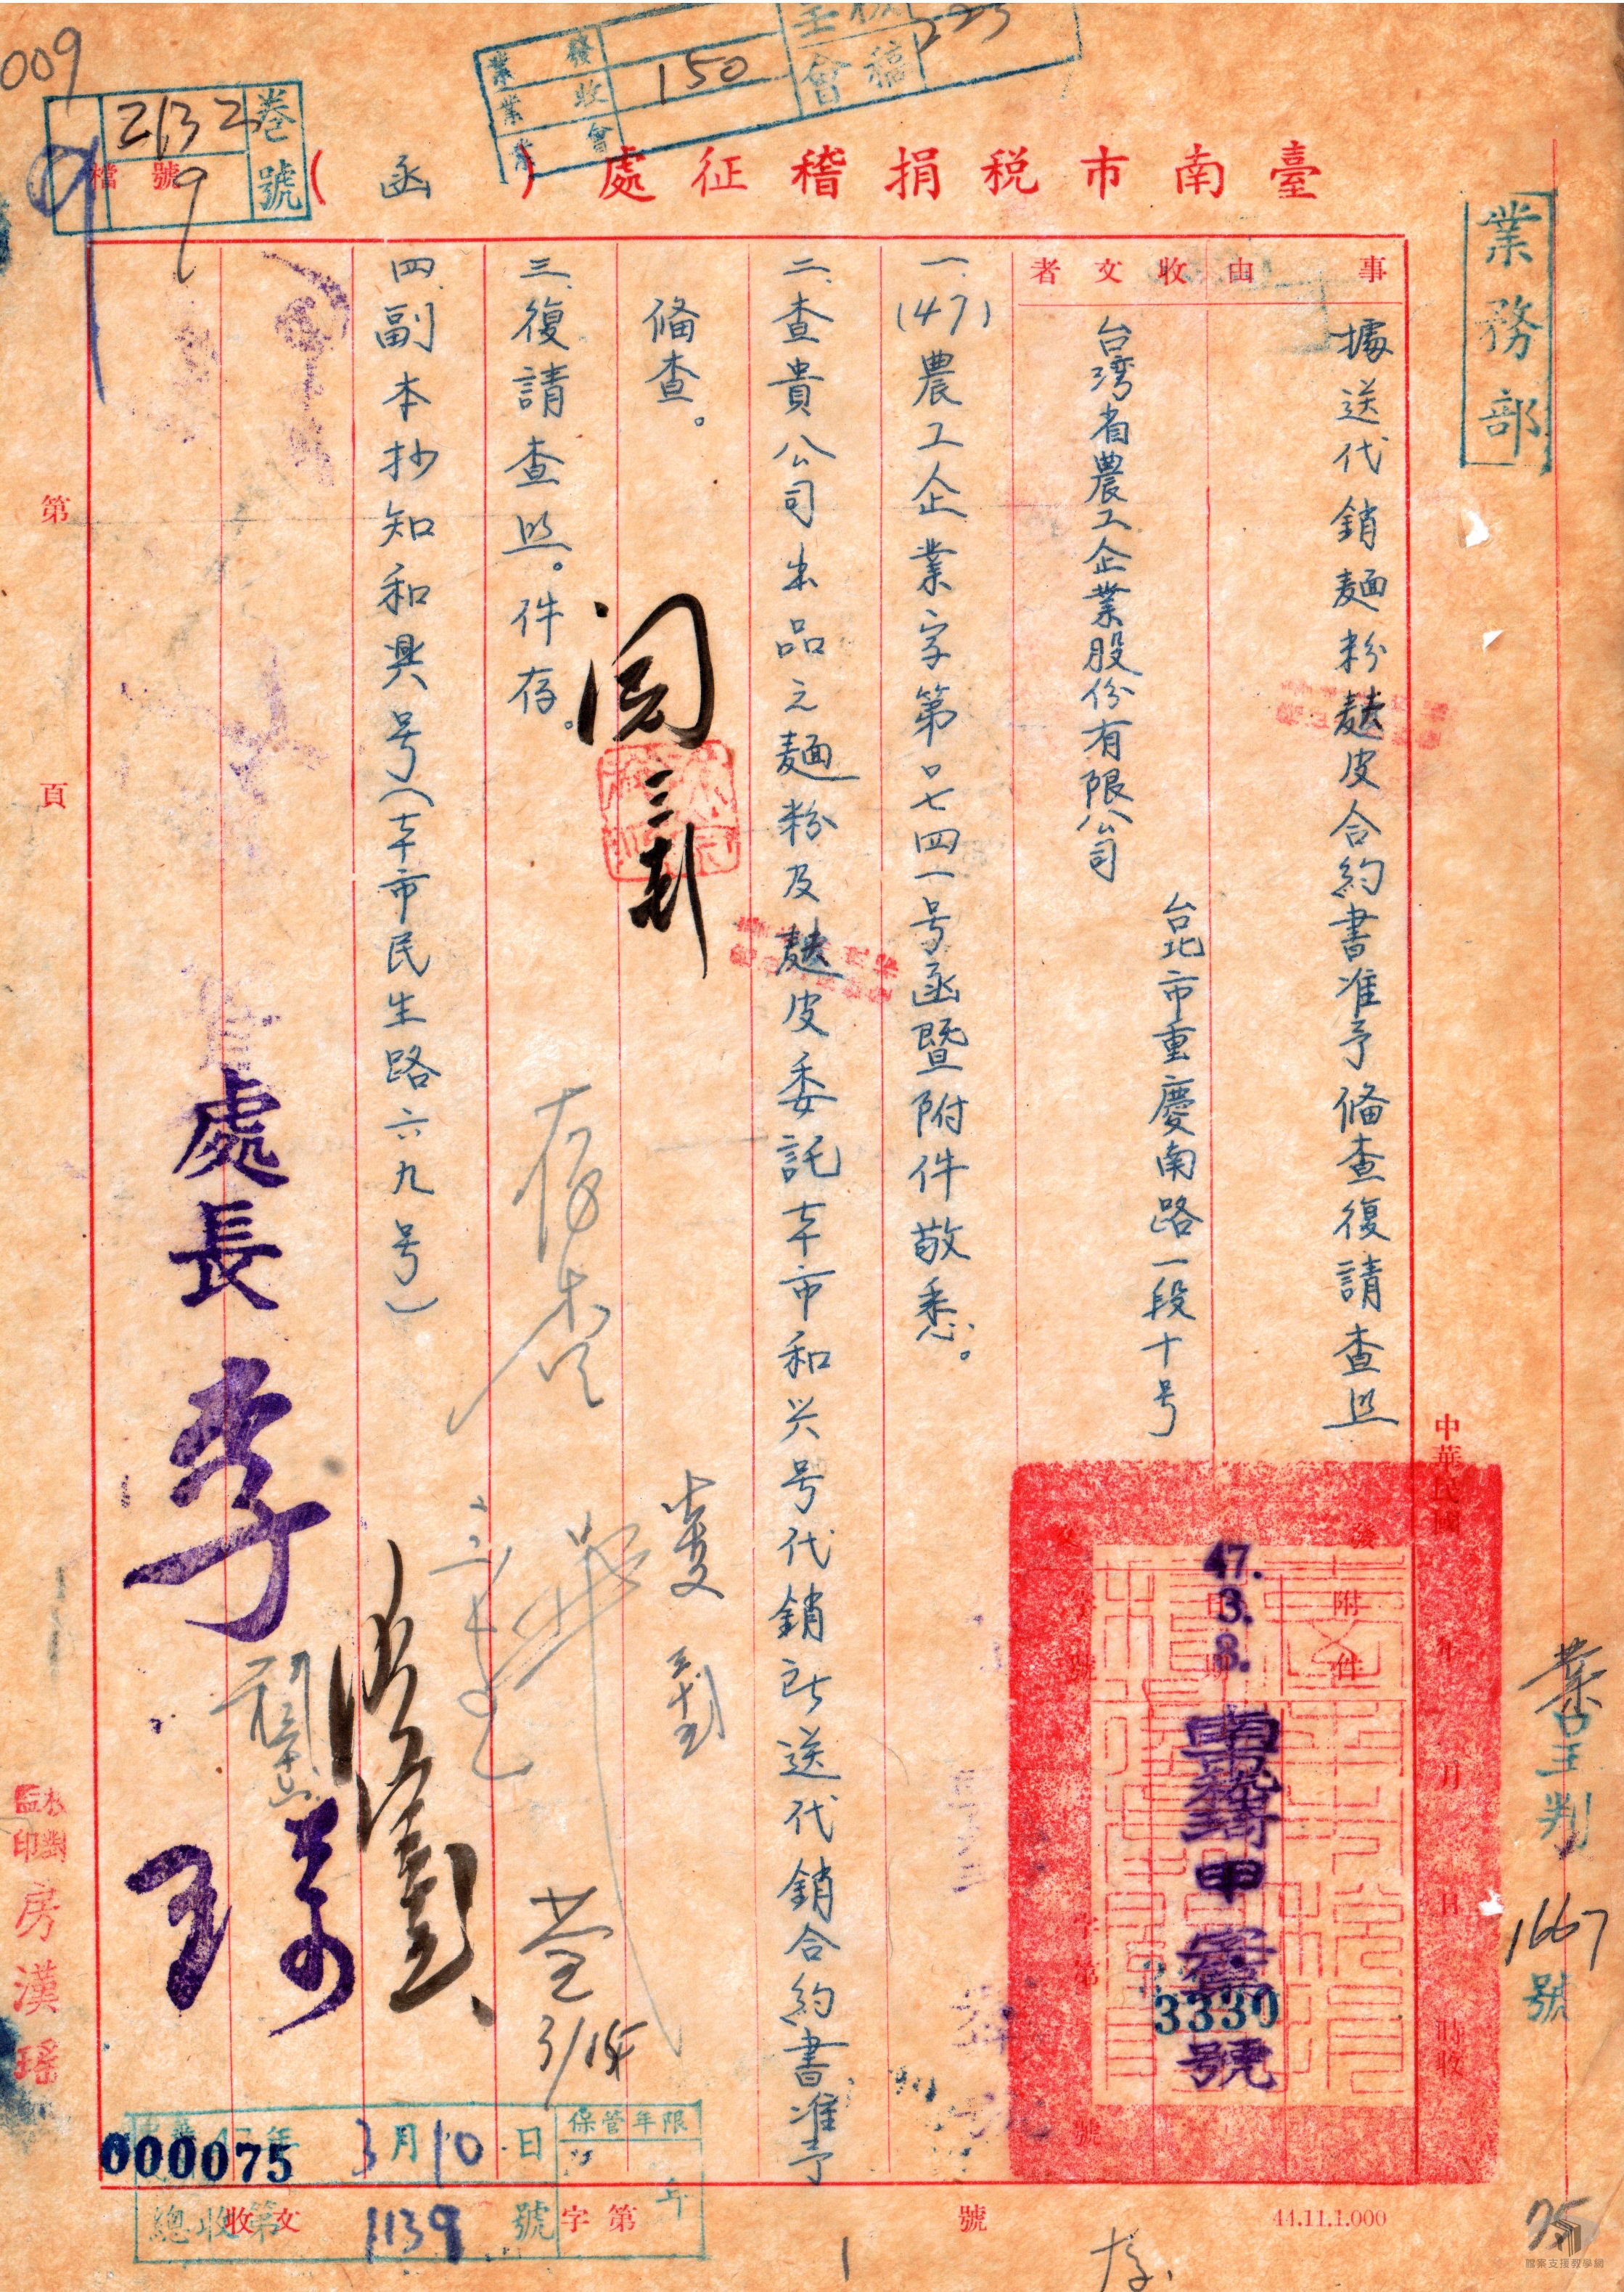 009
業務
業收
業會
150
會稿
卷號
2132
檔號
9
臺南市稅捐稽征處（函）
業務部
事由
據送代銷麵粉麩皮合約書准予偹查復請查照
收文者
台湾省農工企業股份有限公司
台北市重慶南路一段十号
一、(47)農工企業字第口七四一号函暨附件敬悉。
二、查貴公司出品之麵粉及麩皮委託本市和兴号代銷所送代銷合約書准予
偹查。
三、復請查照。件存。
四、副本抄知和興号（本市民生路六九号）
閱
處長李
中華民國 年 月 日 時收
發文
附件
47.3.8.
字第
3330
號
業主判
1667
號
第 頁
校對
監印
房漢瑶
存查
3/15
保管年限
年
000075
3月10日
總收第1139號
收文 字第 號
44.11.1.000
存
75
檔案支援教學網